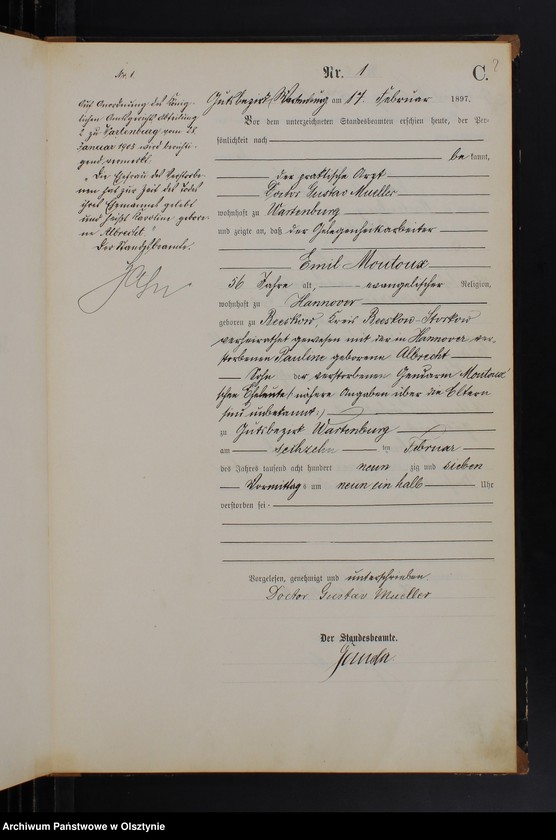 Nr. 1
Auf Anordnung des König-
lichen Amtsgerichts Abteilung
2 zu Wartenburg vom 28.
Januar 1903 wird berichti-
gend vermerkt:
"Die Ehefrau des Verstorbe-
nen hat zur Zeit des Todes
ihres Ehemannes gelebt
und heißt Karoline gebore-
ne Albrecht."
Der Standesbeamte.
Nr. 1
C.
2
Gutsbezirk Wartenburg am 17. Februar 1897.
Vor dem unterzeichneten Standesbeamten erschien heute, der Per-
sönlichkeit nach
be kannt,
der praktische Arzt
Doctor Gustav Mueller
wohnhaft zu Wartenburg
und zeigte an, daß der Gelegenheitsarbeiter
Emil Moutoux
56 Jahre alt, evangelischer Religion,
wohnhaft zu Hannover
geboren zu Beeskow, Kreis Beeskow-Storkow
verheirathet gewesen mit der in Hannover ver-
storbenen Pauline geborene Albrecht
Sohn der verstorbenen Gendarm Moutoux
schen Eheleute (nähere Angaben über die Eltern
sind unbekannt:)
zu Gutsbezirk Wartenburg
am sechzehn ten Februar
des Jahres tausend acht hundert neun zig und sieben
Vormittags um neun ein halb Uhr
verstorben sei.
Vorgelesen, genehmigt und unterschrieben
Doctor Gustav Mueller
Der Standesbeamte.
Archiwum Państwowe w Olsztynie